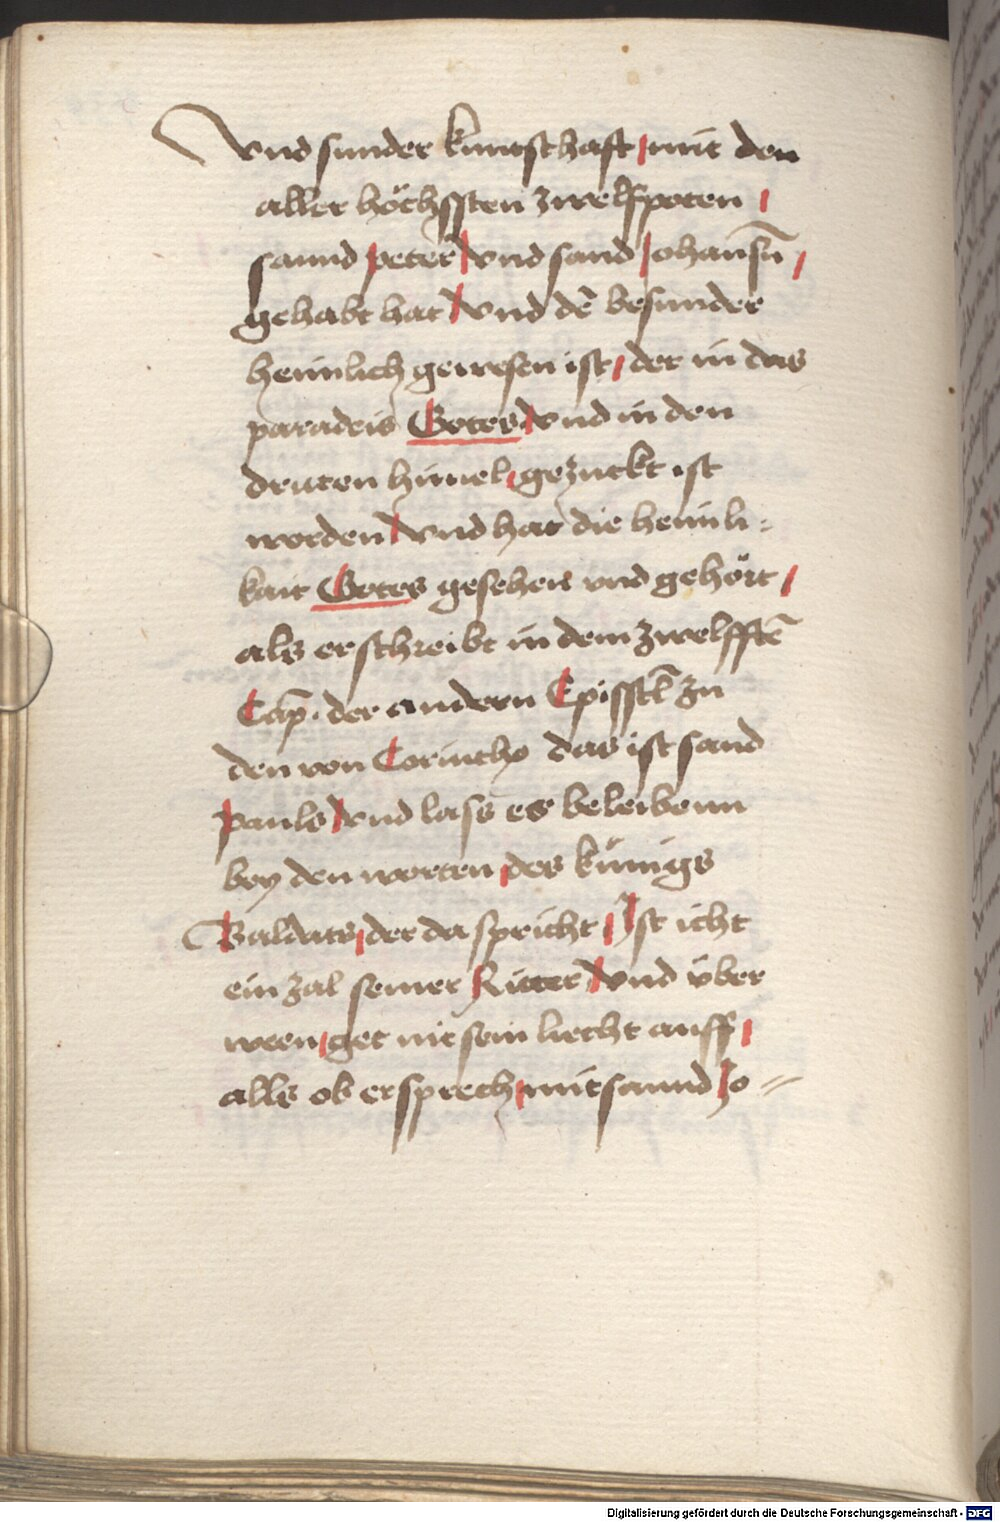 vnd sunder kuntschaft / mit den
aller höchssten zwelfpoten /
sannd peter / vnd sand Johansn̄ /
gehabt hat / vnd dē besunder
heimlich gewesen ist / der in das
paradeis Gotes / vnd in den
dritten himel / gezuckt ist
worden / vnd hat die heimli-
kait Gotes gesehen vnd gehört /
als er schreibt in dem zwelfftē
Cap̄. der andern Episstl̄ zu
den von Corintho das ist sand
pauls / vnd lass es beleibenn
bey den worten / des kúnigs
Baldats / der da spricht / Ist icht
ein zal seiner Ritter / vnd über
ween / get nit sein liecht auff /
alls ob er sprech / mit sannd Jo-
Digitalisierung gefördert durch die Deutsche Forschungsgemeinschaft - DFG